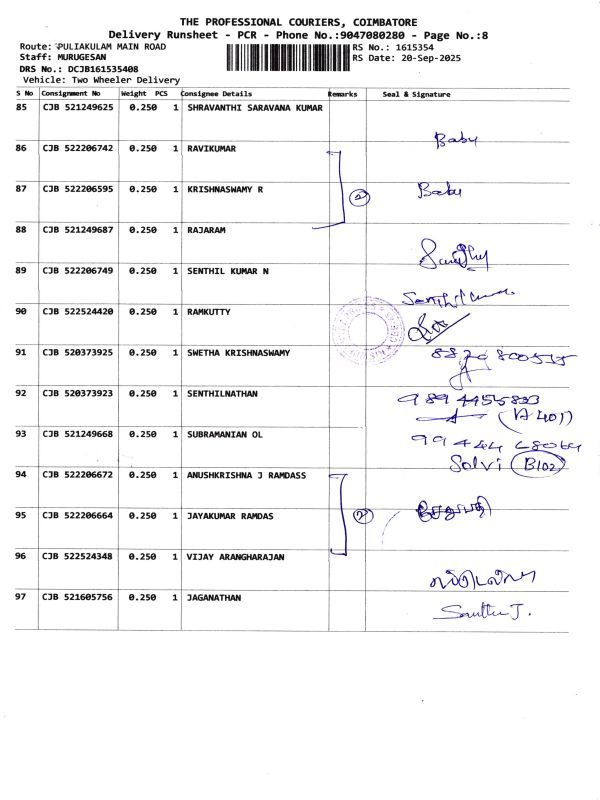 THE PROFESSIONAL COURIERS, COIMBATORE
Delivery Runsheet - PCR - Phone No.:9047080280 - Page No.:8
Route: PULIAKULAM MAIN ROAD RS No.: 1615354
Staff: MURUGESAN RS Date: 20-Sep-2025
DRS No.: DCJB161535408
Vehicle: Two Wheeler Delivery
S No Consignment No Weight PCS Consignee Details Remarks Seal & Signature
85 CJB 521249625 0.250 1 SHRAVANTHI SARAVANA KUMAR Baby
86 CJB 522206742 0.250 1 RAVIKUMAR
87 CJB 522206595 0.250 1 KRISHNASWAMY R 2 Baby
88 CJB 521249687 0.250 1 RAJARAM
89 CJB 522206749 0.250 1 SENTHIL KUMAR N Senthilkumar
90 CJB 522524420 0.250 1 RAMKUTTY
91 CJB 520373925 0.250 1 SWETHA KRISHNASWAMY
92 CJB 520373923 0.250 1 SENTHILNATHAN
(A 401)
93 CJB 521249668 0.250 1 SUBRAMANIAN OL
Selvi B102
94 CJB 522206672 0.250 1 ANUSHKRISHNA J RAMDASS
95 CJB 522206664 0.250 1 JAYAKUMAR RAMDAS 2
96 CJB 522524348 0.250 1 VIJAY ARANGHARAJAN
97 CJB 521605756 0.250 1 JAGANATHAN